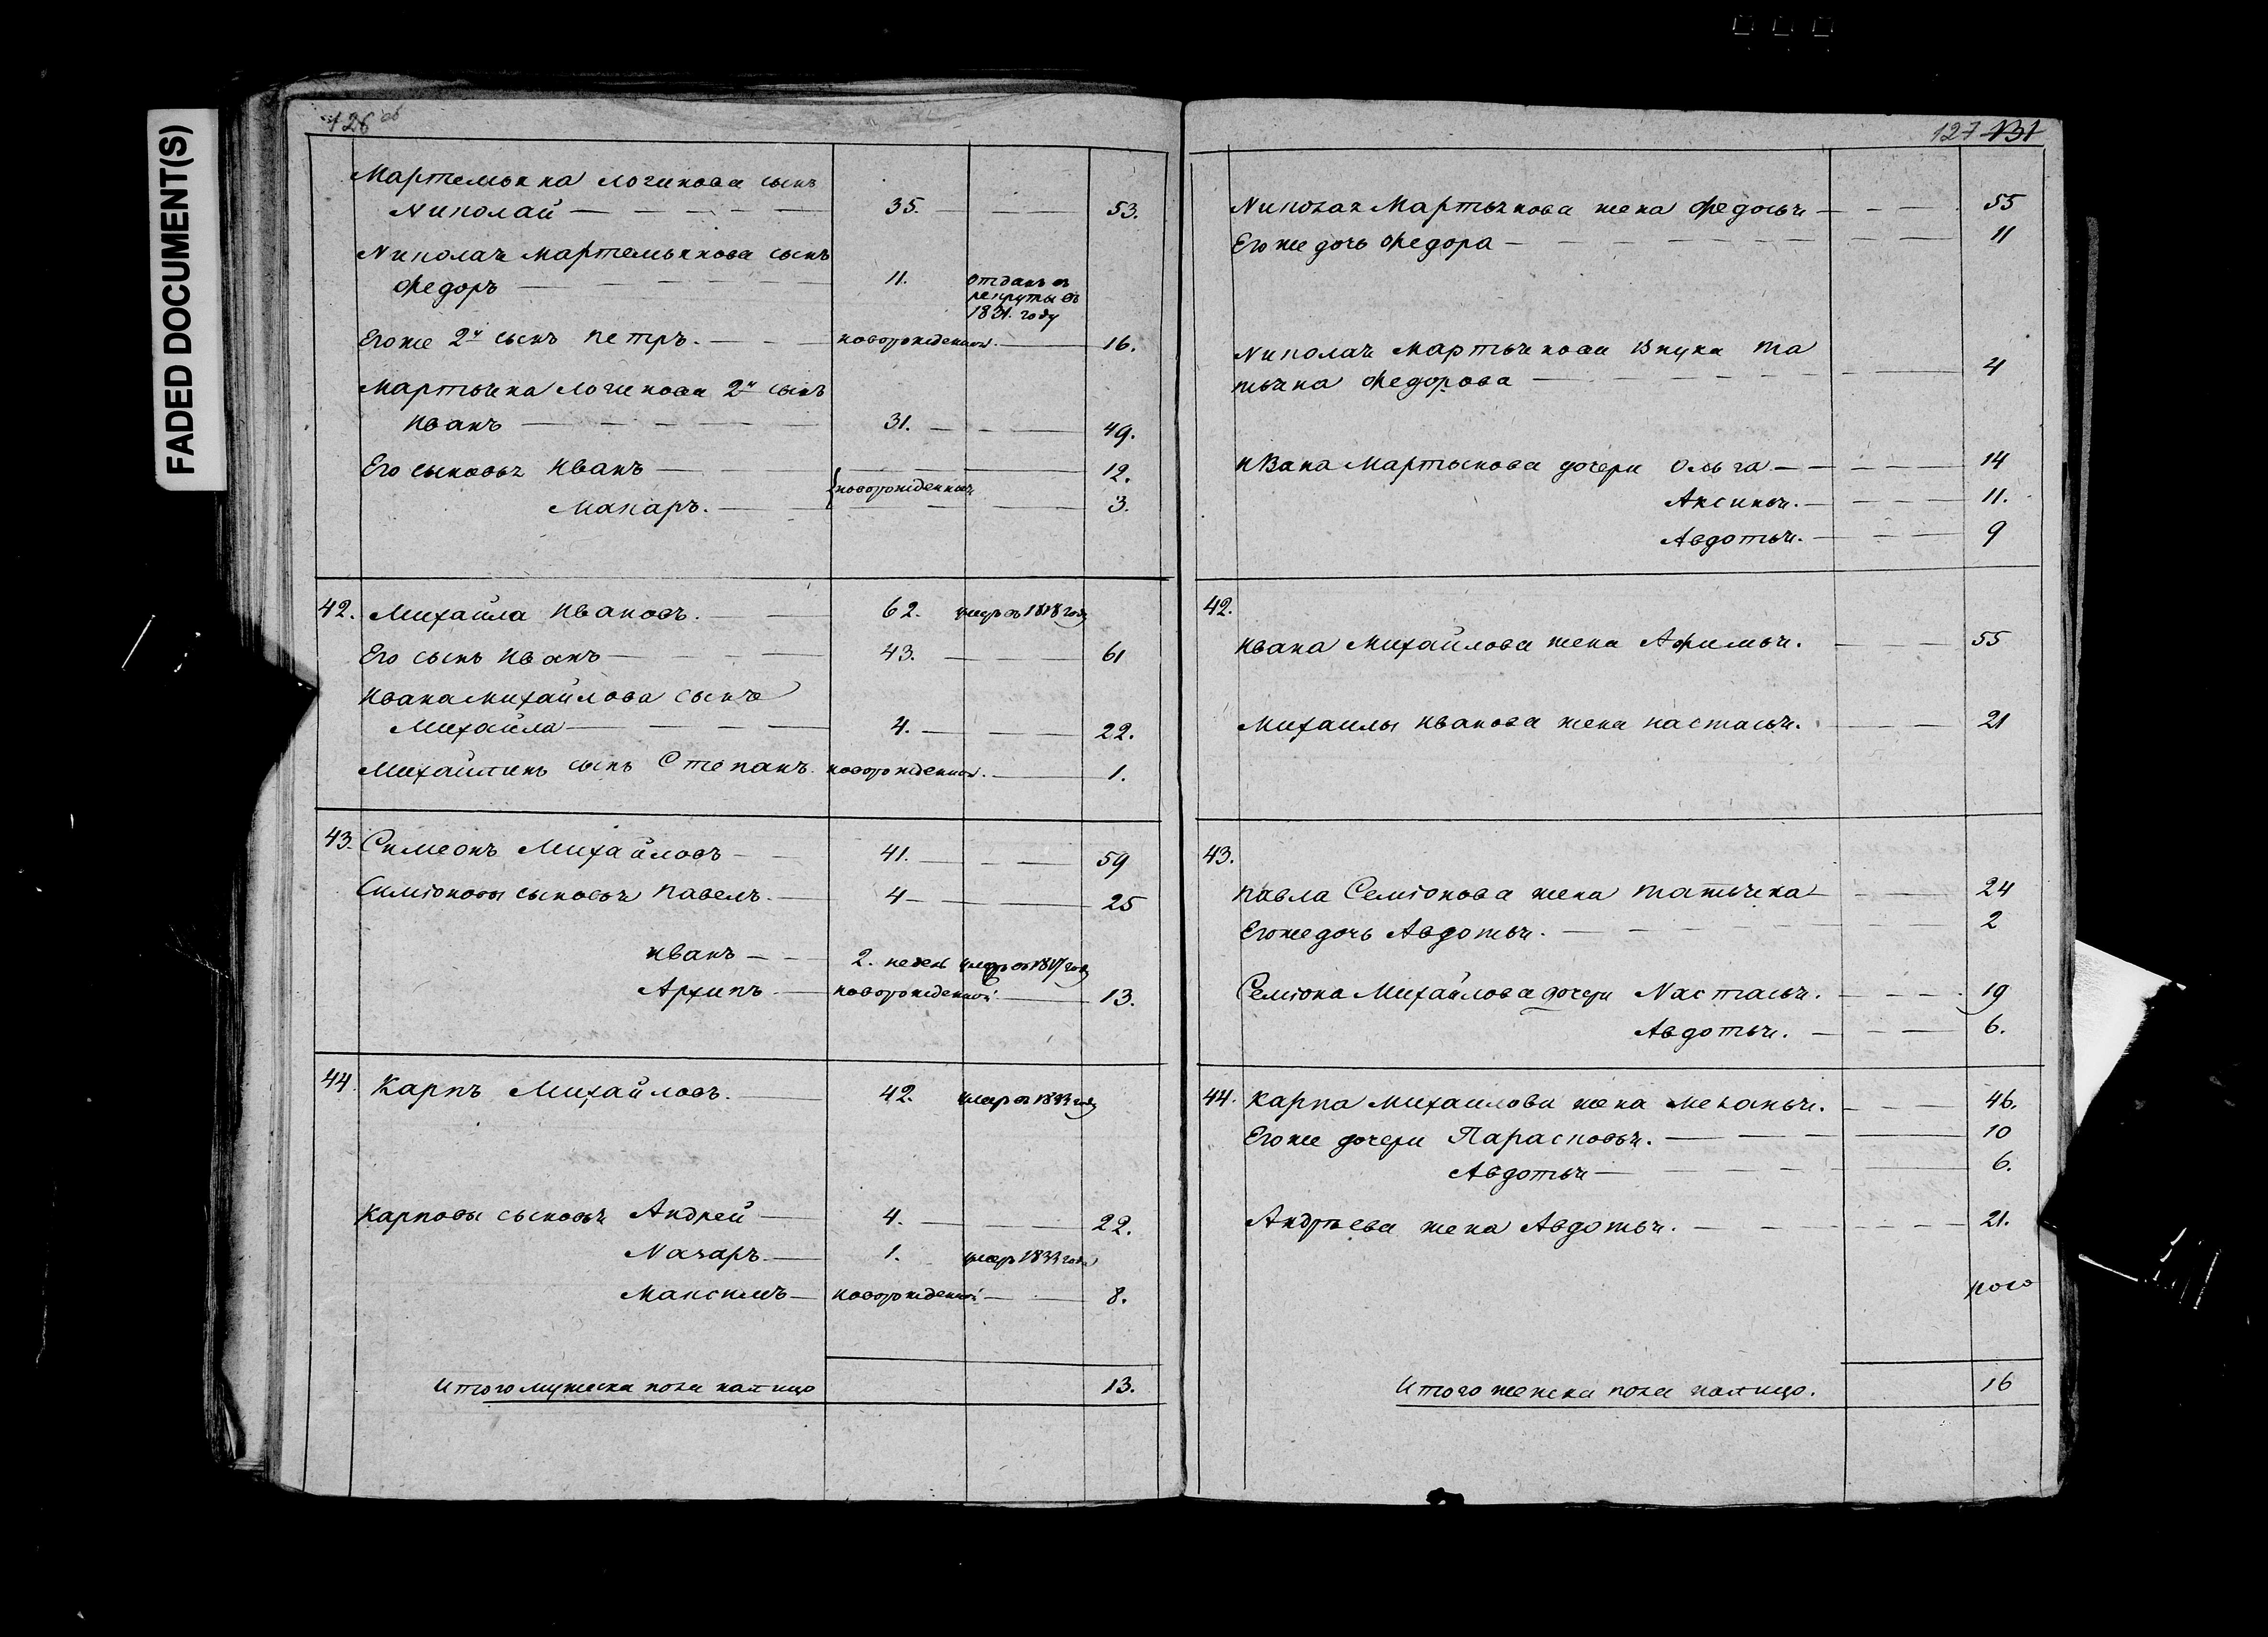 FADED DOCUMENT(S)
126 об
Мартемьяна логинова сынъ
Николай — 35. — 53.
Николая Мартемьянова сынъ
Федоръ — 11. отданъ въ
рекруты въ
1831. году
Егоже 2й сынъ петръ. — новорожденной. — 16.
Мартьяна логинова 2й сынъ
иванъ — 31. — 49.
Его сыновья иванъ — 12.
новорожденныя
Макаръ. — 3.
42. Михайла ивановъ. — 62. умеръ въ 1818 году
Его сынъ иванъ — 43. — 61
ивана михайлова сынъ
Михайла — 4. — 22.
Михайлинъ сынъ Степанъ. новорожденной. — 1.
43. Симеонъ Михайловъ — 41. — 59
Симіоновы сыновья павелъ. — 4 — 25
иванъ — 2. недель умеръ въ 1817 году
Архипъ — новорожденной — 13.
44. Карпъ Михайловъ. — 42. умеръ въ 1833 году
Карповы сыновья Андрей — 4. — 22.
Назаръ. — 1. умеръ 1833 года
Максимъ — новорожденной — 8.
Итого мужеска пола налицо 13.
127 131
Николая Мартьянова жена Федосья — 55
Егоже дочь Федора — 11
Николая Мартьянова внука та
тьяна Федорова — 4
ивана Мартьянова дочери Ольга — 14
Аксинья. — 11.
Авдотья. — 9
42.
ивана Михайлова жена Афимья. — 55
Михаилы иванова жена настасья. — 21
43.
павла Семіонова жена татьяна — 24
Егоже дочь Авдотья. — 2
Семіона Михайлова дочери Настасья. — 19
Авдотья. — 6.
44. Карпа Михаилова жена Меланья. — 46.
Егоже дочери Парасковья. — 10
Авдотья — 6.
Андрѣева жена Авдотья. — 21.
Итого женска пола налицо. 16